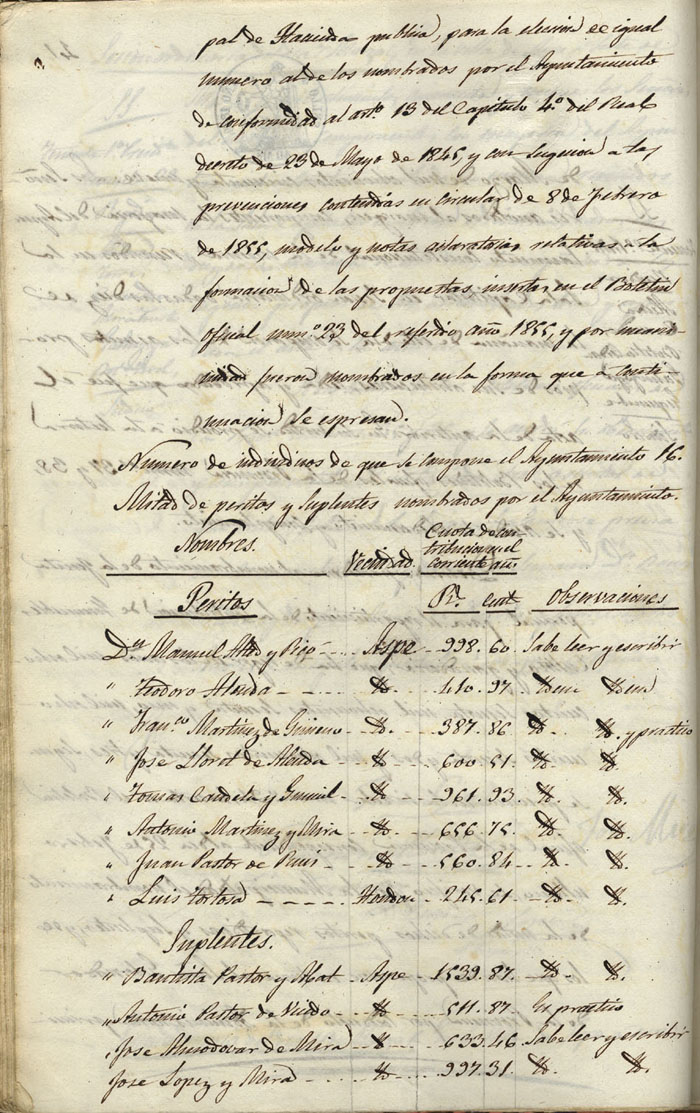 pal de Hacienda publica, para la elecion de igual
numero al de los nombrados por el Ayuntamiento
de conformidad al artº. 13 del Capitulo 4º del Real
decreto de 23 de Mayo de 1845, y con sugecion a las
prevenciones contenidas en circular de 8 de febrero
de 1855, modelo y notas aclaratorias relativas a la
formacion de las propuestas insertas en el Boletin
oficial num.º 23 del referido año 1855, y por unani-
midad fueron nombrados en la forma que a conti-
nuacion se espresan.
Numero de individuos de que se compone el Ayuntamiento 16.
Mitad de peritos y Suplentes nombrados por el Ayuntamiento.
Nombres. Vecindad. Cuota de con-
tribucion en el
corriente año.
Peritos Rs. Cent Observaciones
Dn. Manuel y Rico Aspe 998. 60 Sabe leer y escribir
" Teodoro Alenda 410. 97 Idem Idem
" Fran.co Martinez de Gimeno 387. 86 y practico
" Jose Lloret de Alenda 600. 51
" Tomas Candela y 961. 93
" Antonio Martinez y Mira 656. 75
" Juan Pastor de Ruis 560. 84
" Luis Tortosa Hondon 245. 61
Suplentes.
" Bautista Pastor y Abat Aspe 1539. 87
" Antonio Pastor de 511. 87 En practico
" Jose Almodovar de Mira 633. 46 Sabe leer y escribir
Jose Lopez y Mira 997. 31